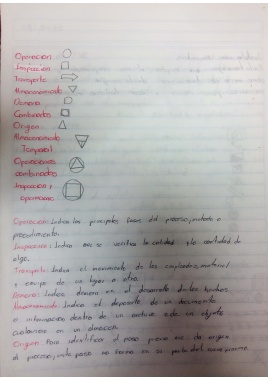 Operacion
Inspeccion
Transporte
Almacenamiento
Demora
Combinados
Origen
Almacenamiento
Temporal
Operaciones
combinadas
Inspeccion y
operaciones
Operacion: Indica las principales fases del proceso, metodo o
procedimiento.
Inspeccion: Indica que se verifica la calidad y/o cantidad de
algo.
Transporte: Indica el movimiento de los empleados, material
y equipo de un lugar a otro.
Demora: Indica demora en el desarrollo de los hechos.
Almacenamiento: Indica el deposito de un documento
o informacion dentro de un archivo o de un objeto
cualquiera en un almacen.
Origen: Para identificar el paso previo que da origen
al proceso, este paso no forma en si parte del nuevo proceso